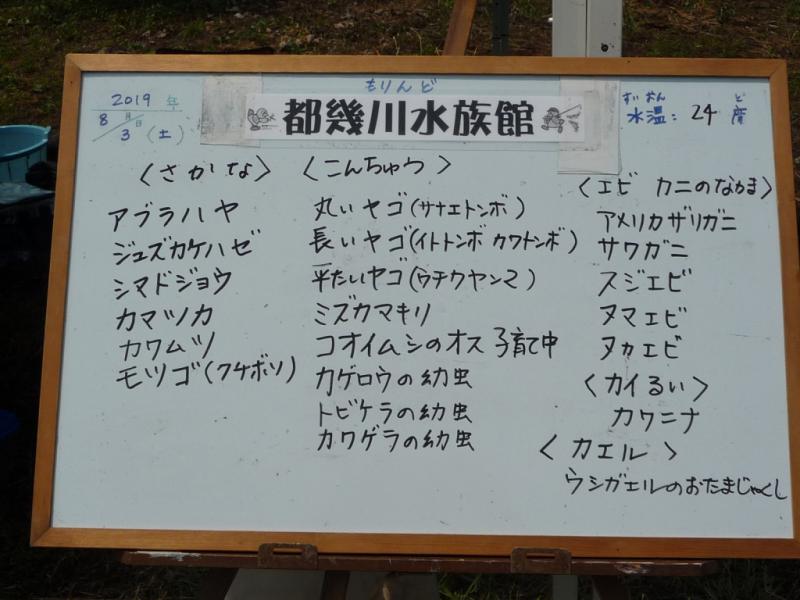 2019年
8月3日(土)
もりんど
都幾川水族館
すいおん ど
水温: 24 度
<さかな>
アブラハヤ
ジュズカケハゼ
シマドジョウ
カマツカ
カワムツ
モツゴ(クチボソ)
<こんちゅう>
丸いヤゴ(サナエトンボ)
長いヤゴ(イトトンボ カワトンボ)
平たいヤゴ(ウチクヤンマ)
ミズカマキリ
コオイムシのオス 子育て中
カゲロウの幼虫
トビケラの幼虫
カワゲラの幼虫
<エビ カニのなかま>
アメリカザリガニ
サワガニ
スジエビ
ヌマエビ
ヌカエビ
<カイるい>
カワニナ
<カエル>
ウシガエルのおたまじゃくし